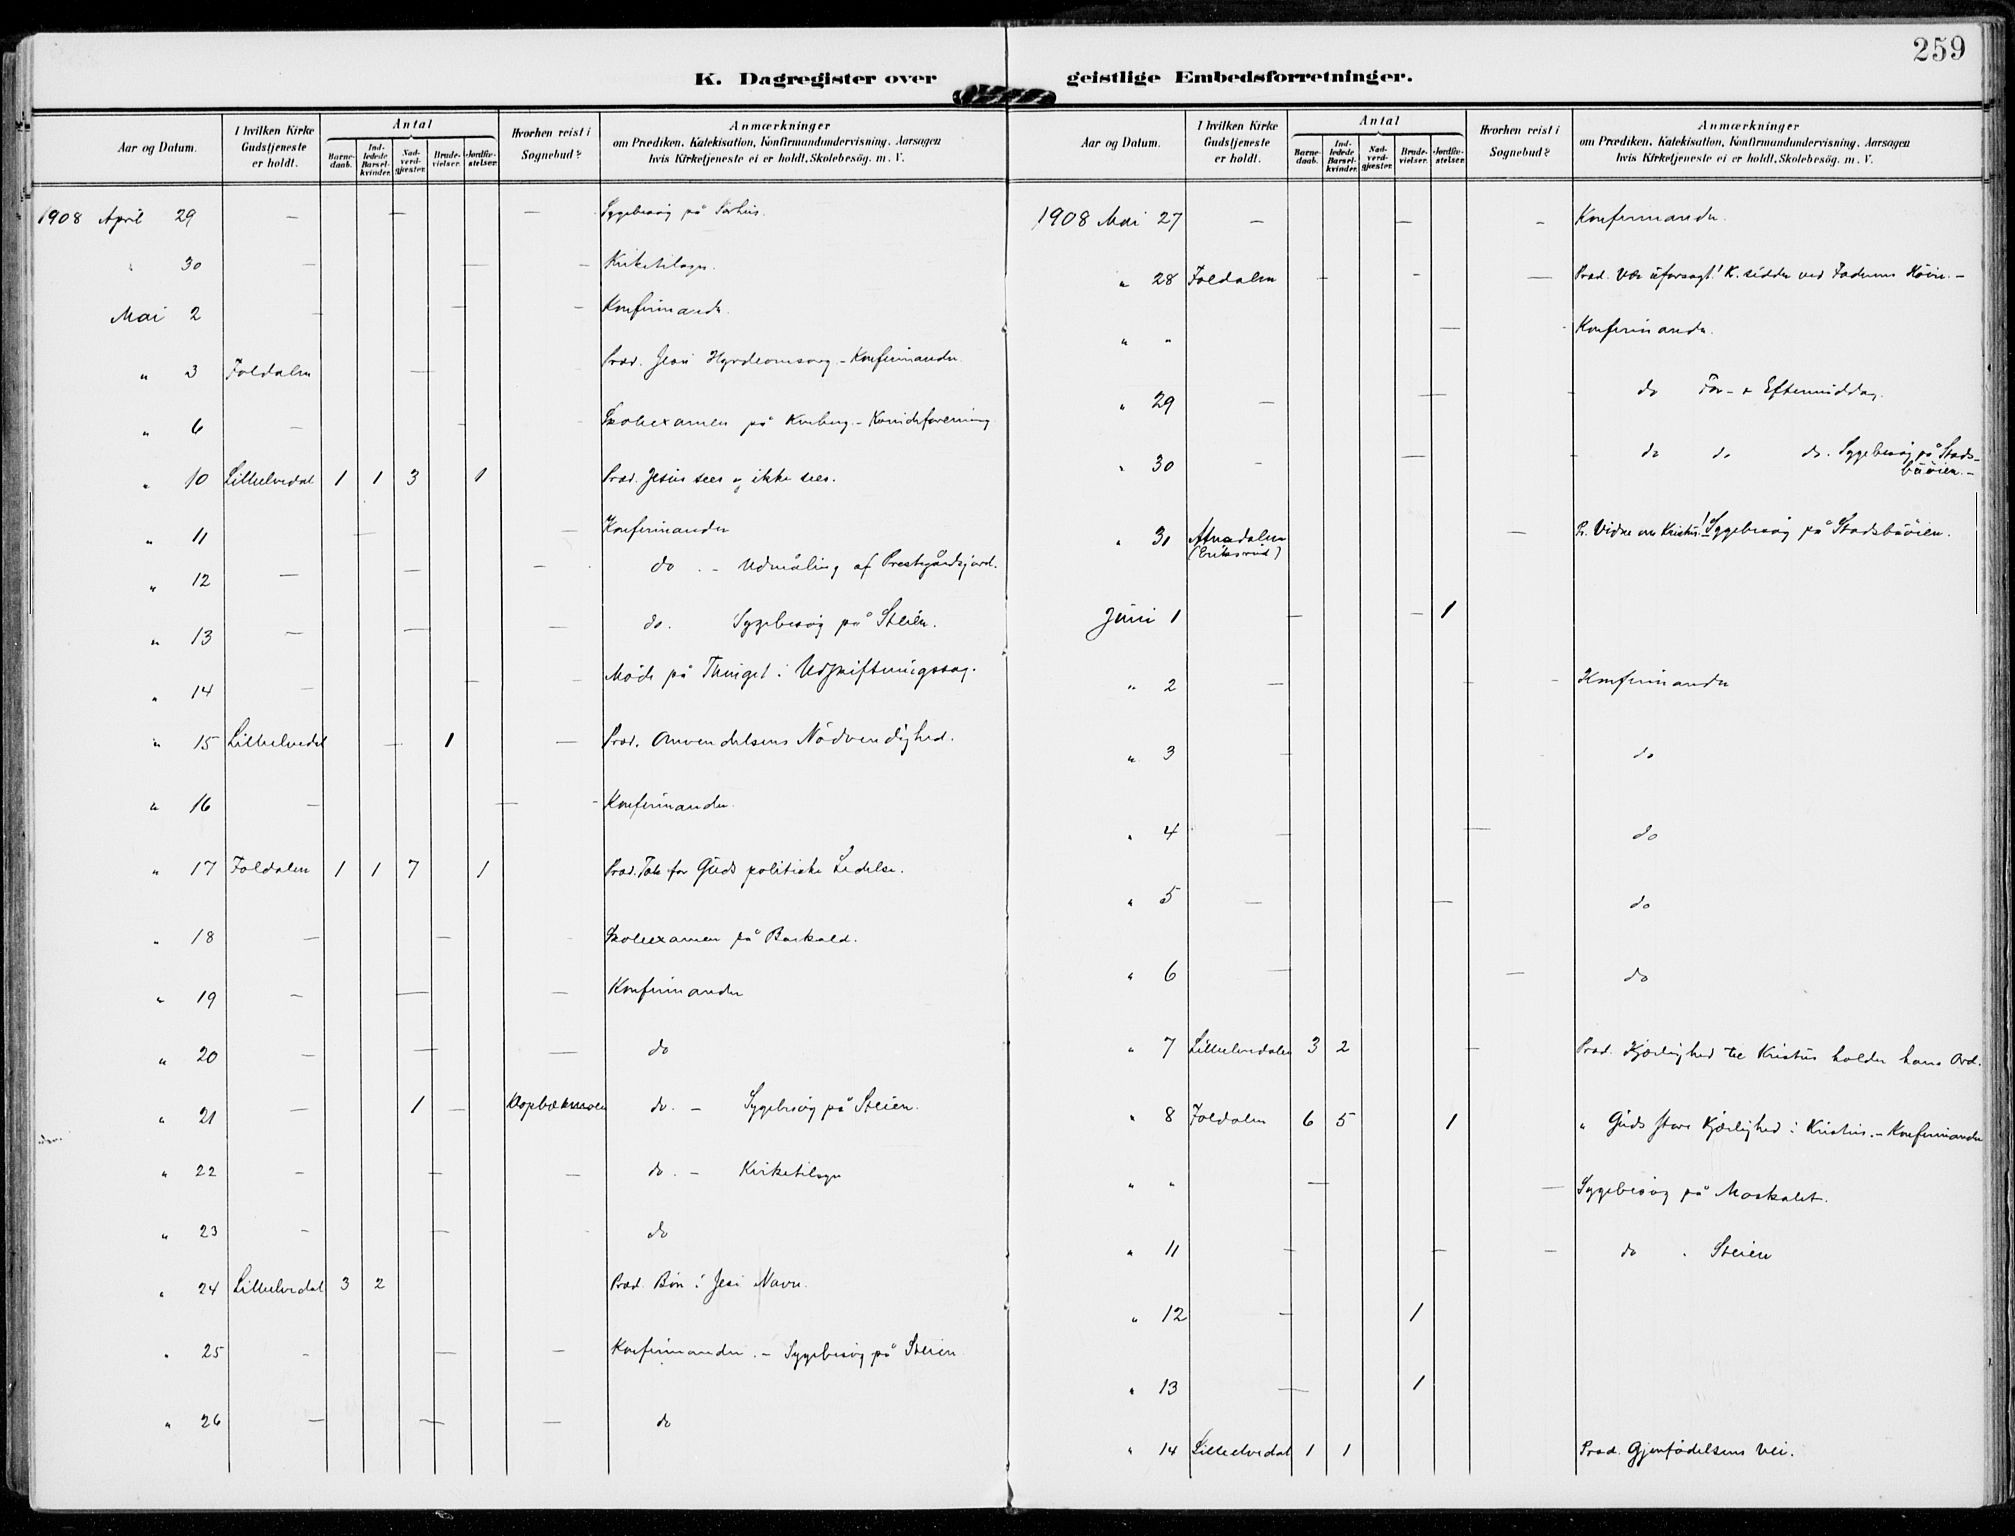 259
K. Dagregister over geistlige Embedsforretninger.
Aar og Datum. I hvilken Kirke Gudstjeneste er holdt. Antal Barnedaab. Indledede Barselkvinder. Nadverdgjæster. Brudevielser. Jordfæstelser. Hvorhen reist i Sognebud? Anmærkninger om Prædiken, Katekisation, Konfirmandundervisning, Aarsagen hvis Kirketjeneste ei er holdt, Skolebesög. m. V.
1908 April 29 — — — Sygebesøg på Sørhus.
" 30 — — — Kirketilsyn.
Mai 2 — — — Konfirmander.
" 3 Foldalen — Præd. Jesu Hyrdeomsorg. – Konfirmander.
" 6 — — — Skoleexamen på – Kvindeforening
" 10 Lilleelvedal 1 1 3 1 Præd. Jesus sees og ikke sees.
" 11 — — Konfirmander
" 12 — — — do. – Udmåling af Prestegårdsjord.
" 13 — — — do. Sygebesøg på Steien.
" 14 — — — Møde på Thinget i Udskiftningssag.
" 15 Lilleelvedal — 1 — Præd. Omvendelsens Nödvendighed.
" 16 — — — Konfirmander.
" 17 Foldalen 1 1 7 1 Præd. Tak for Guds politiske Ledelse.
" 18 — — Skoleexamen på Barkald.
" 19 — — — Konfirmander
" 20 — — — do
" 21 — 1 — Klopbækmoen do. – Sygebesøg på Steien.
" 22 — — — do. – Kirketilsyn
" 23 — — do
" 24 Lilleelvedal 3 2 Præd. Bøn i Jesu Navn.
" 25 — — — Konfirmander. – Sygebesøg på Steien.
" 26 — — — do
Aar og Datum. I hvilken Kirke Gudstjeneste er holdt. Antal Barnedaab. Indledede Barselkvinder. Nadverdgjæster. Brudevielser. Jordfæstelser. Hvorhen reist i Sognebud? Anmærkninger om Prædiken, Katekisation, Konfirmandundervisning, Aarsagen hvis Kirketjeneste ei er holdt, Skolebesög. m. V.
1908 Mai 27 — — — Konfirmander.
" 28 Foldalen — — — Præd. Vær uforsagt! K. sidder ved Faderens Høire. –
" " — Konfirmander.
" 29 — — do For- & Eftermiddag.
" 30 — — do do do. Sygebesøg på Stads-
buøien. –
" 31 Atnadalen — Pr. Vidne om Kristus! Sygebesøg på Stadsbuøien.
(Eriksrud)
Juni 1 — — 1
" 2 — — — Konfirmander
" 3 — — do
" 4 — — do
" 5 — — do
" 6 — — do
" 7 Lilleelvedalen 3 2 — Præd. Kjærlighed til Kristus holder hans Ord.
" 8 Foldalen 6 5 1 " Guds store Kjærlighed i Kristus. – Konfirmander
" " — — Sygebesøg på Moskalet.
" 11 — — — do " Steien
" 12 — 1
" 13 — 1
" 14 Lilleelvedal 1 1 Præd. Gjenfødelsens Vei.